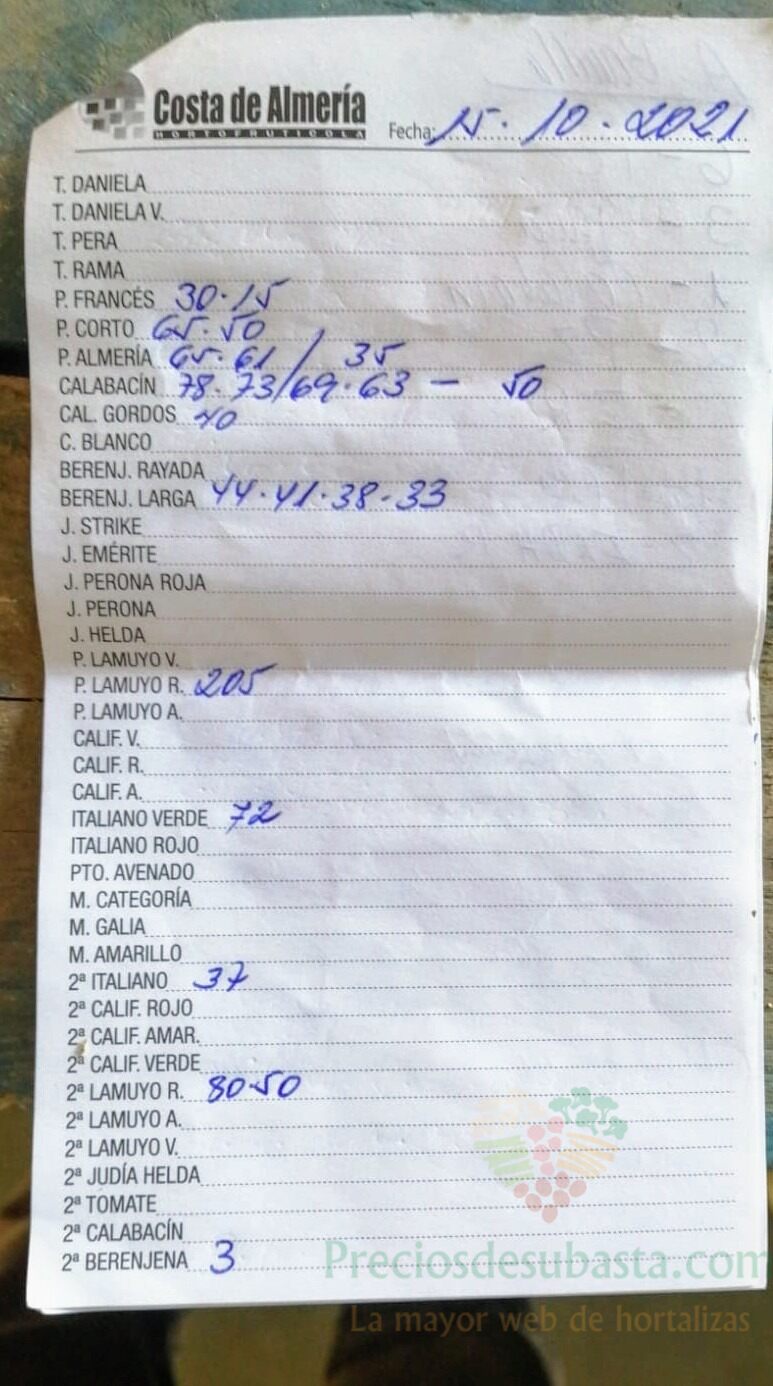 Costa de Almería
HORTOFRUTICOLA
Fecha: 15.10.2021
T. DANIELA
T. DANIELA V.
T. PERA
T. RAMA
P. FRANCÉS 30.15
P. CORTO 65.50
P. ALMERÍA 65.61 / 35
CALABACÍN 78.73/69.63 - 50
CAL. GORDOS 40
C. BLANCO
BERENJ. RAYADA
BERENJ. LARGA 44.41.38.33
J. STRIKE
J. EMÉRITE
J. PERONA ROJA
J. PERONA
J. HELDA
P. LAMUYO V.
P. LAMUYO R. 205
P. LAMUYO A.
CALIF. V.
CALIF. R.
CALIF. A.
ITALIANO VERDE 72
ITALIANO ROJO
PTO. AVENADO
M. CATEGORÍA
M. GALIA
M. AMARILLO
2ª ITALIANO 37
2ª CALIF. ROJO
2ª CALIF. AMAR.
2ª CALIF. VERDE
2ª LAMUYO R. 80.50
2ª LAMUYO A.
2ª LAMUYO V.
2ª JUDÍA HELDA
2ª TOMATE
2ª CALABACÍN
2ª BERENJENA 3
Preciosdesubasta.com
La mayor web de hortalizas